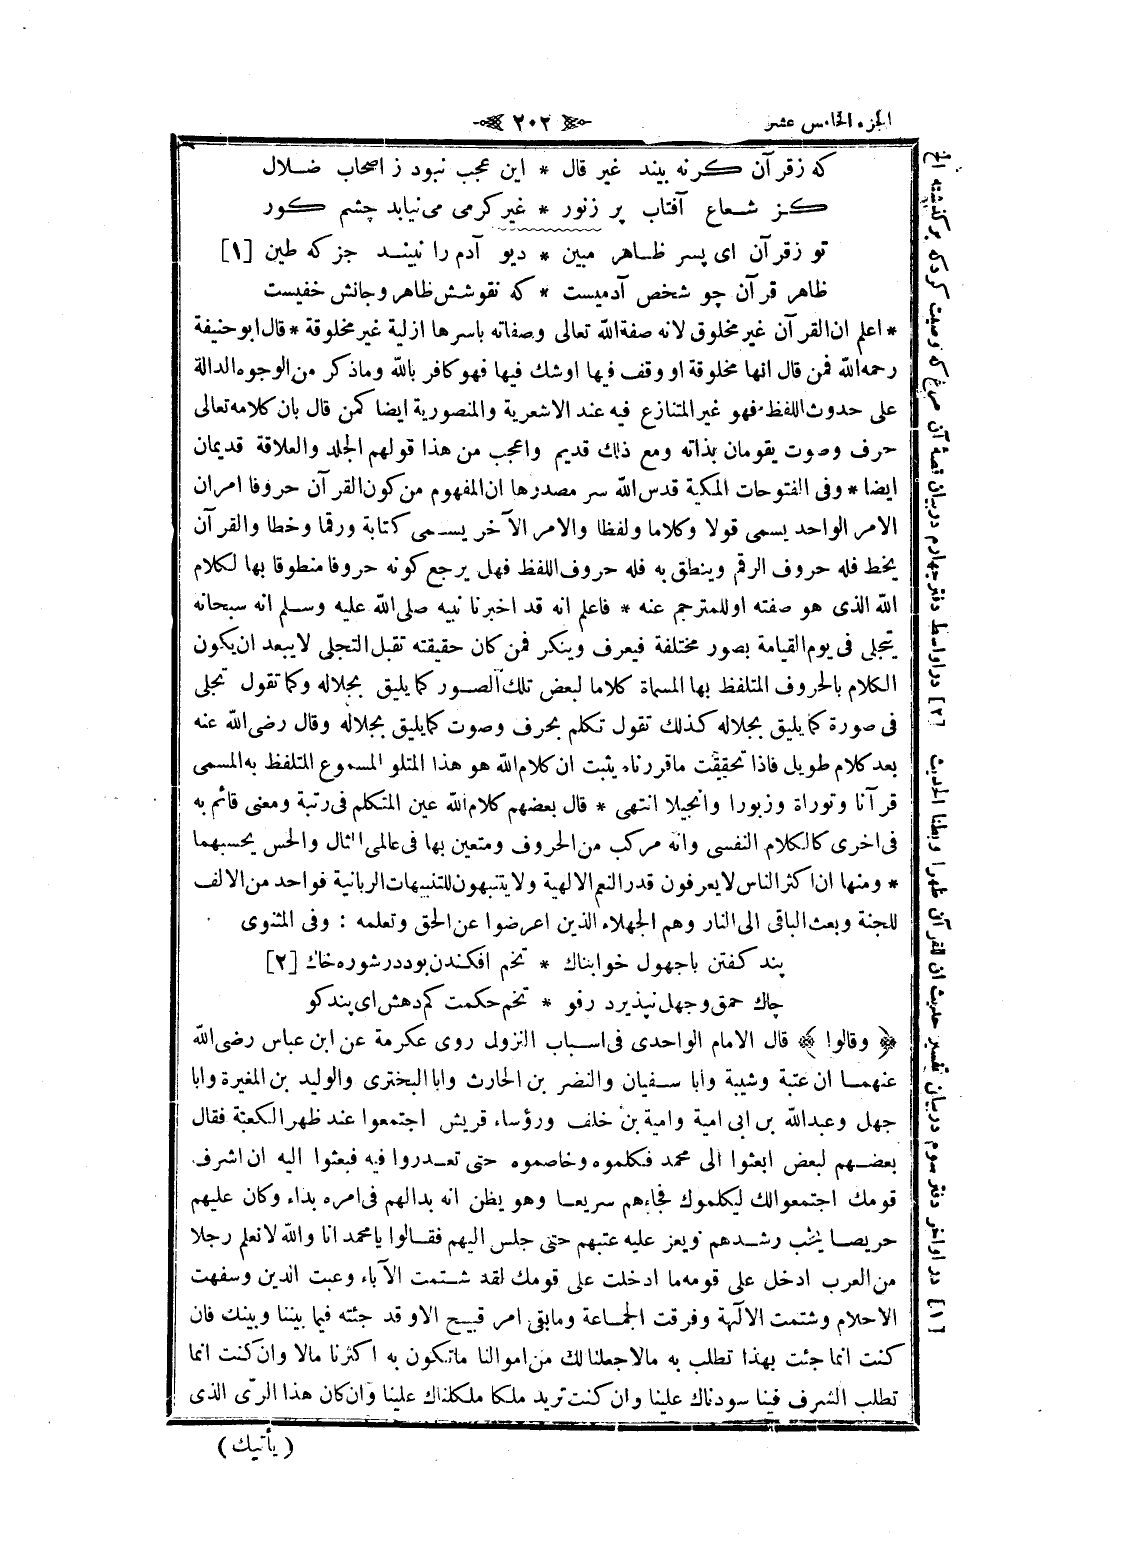 الجزء الخامس عشر
٢٠٢
كه زقرآن كرنه بيند غير قال * اين عجب نبود ز اصحاب ضلال
كز شعاع آفتاب پر زنور * غير كرمى مى نيابد چشم كور
تو زقرآن اى پسر ظاهر مبين * ديو آدم را نبيند جز كه طين [١]
ظاهر قرآن چو شخص آدميست * كه نقوشش ظاهر وجانش خفيست
* اعلم ان القرآن غير مخلوق لانه صفة الله تعالى وصفاته باسرها ازلية غير مخلوقة * قال ابو حنيفة
رحمه الله فمن قال انها مخلوقة او وقف فيها اوشك فيها فهو كافر بالله وماذكر من الوجوه الدالة
على حدوث اللفظ فهو غير المتنازع فيه عند الاشعرية والمنصورية ايضا كمن قال بان كلامه تعالى
حرف وصوت يقومان بذاته ومع ذلك قديم واعجب من هذا قولهم الجلد والعلاقة قديمان
ايضا * وفى الفتوحات المكية قدس الله سر مصدرها ان المفهوم من كون القرآن حروفا امران
الامر الواحد يسمى قولا وكلاما ولفظا والامر الآخر يسمى كتابة ورقما وخطا والقرآن
يخط فله حروف الرقم وينطق به فله حروف اللفظ فهل يرجع كونه حروفا منطوقا بها لكلام
الله الذى هو صفته او للمترجم عنه * فاعلم انه قد اخبرنا نبيه صلى الله عليه وسلم انه سبحانه
يتجلى فى يوم القيامة بصور مختلفة فيعرف وينكر فمن كان حقيقته تقبل التجلى لايبعد ان يكون
الكلام بالحروف المتلفظ بها المسماة كلاما لبعض تلك الصور كما يليق بجلاله وكما تقول تجلى
فى صورة كما يليق بجلاله كذلك تقول تكلم بحرف وصوت كما يليق بجلاله وقال رضى الله عنه
بعد كلام طويل فاذا تحققت ماقررناه يثبت ان كلام الله هو هذا المتلو المسموع المتلفظ به المسمى
قرآنا وتوراة وزبورا وانجيلا انتهى * قال بعضهم كلام الله عين المتكلم فى رتبة ومعنى قائم به
فى اخرى كالكلام النفسى وانه مركب من الحروف ومتعين بها فى عالمى المثال والحس بحسبهما
* ومنها ان اكثر الناس لايعرفون قدر النعم الالهية ولايتنبهون للتنبيهات الربانية فواحد من الالف
للجنة وبعث الباقى الى النار وهم الجهلاء الذين اعرضوا عن الحق وتعلمه : وفى المثنوى
پند كفتن باجهول خوابناك * تخم افكندن بود در شوره خاك [٢]
چاك حمق وجهل نپذيرد رفو * تخم حكمت كم دهش اى پندكو
﴿ وقالوا ﴾ قال الامام الواحدى فى اسباب النزول روى عكرمة عن ابن عباس رضى الله
عنهما ان عتبة وشيبة وابا سفيان والنضر بن الحارث وابا البخترى والوليد بن المغيرة وابا
جهل وعبد الله بن ابى امية وامية بن خلف ورؤساء قريش اجتمعوا عند ظهر الكعبة فقال
بعضهم لبعض ابعثوا الى محمد فكلموه وخاصموه حتى تعذروا فيه فبعثوا اليه ان اشرف
قومك اجتمعوا لك ليكلموك فجاءهم سريعا وهو يظن انه بدالهم فى امره بداء وكان عليهم
حريصا يحب رشدهم ويعز عليه عتبهم حتى جلس اليهم فقالوا يا محمد انا والله لانعلم رجلا
من العرب ادخل على قومه ما ادخلت على قومك لقد شتمت الآباء وعبت الدين وسفهت
الاحلام وشتمت الآلهة وفرقت الجماعة ومابقى امر قبيح الا وقد جئته فيما بيننا وبينك فان
كنت انما جئت بهذا تطلب به مالا جعلنا لك من اموالنا ماتكون به اكثرنا مالا وان كنت انما
تطلب الشرف فينا سودناك علينا وان كنت تريد ملكا ملكناك علينا وان كان هذا الرئى الذى
( يأتيك )
[١] در اواخر دفتر سوم دربيان تفسير حديث ان للقرآن ظهرا وبطنا الحديث [٢] در اواسط دفتر چهارم دربيان قصۀ آن مرغ كه وصيت كرد كه بر كذشته الخ